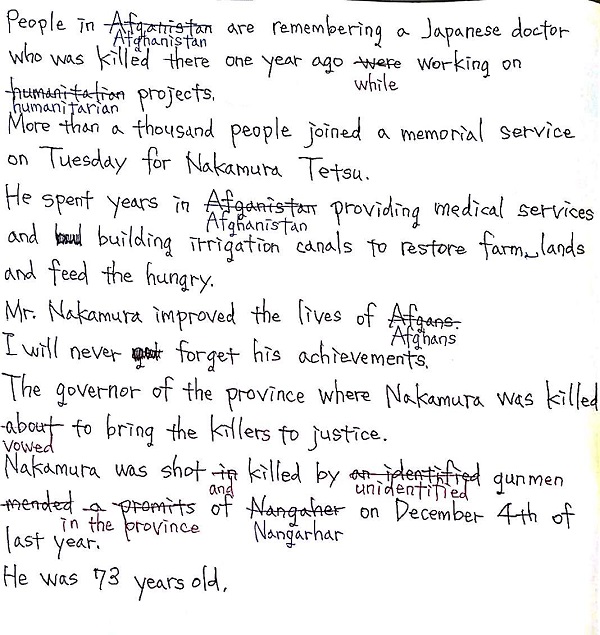 People in Afganistan are remembering a Japanese doctor
Afghanistan
who was killed there one year ago were working on
while
humanitalian projects.
humanitarian
More than a thousand people joined a memorial service
on Tuesday for Nakamura Tetsu.
He spent years in Afganistan providing medical services
Afghanistan
and building irrigation canals to restore farm lands
and feed the hungry.
Mr. Nakamura improved the lives of Afgans.
Afghans
I will never forget his achievements.
The governor of the province where Nakamura was killed
about to bring the killers to justice.
vowed
Nakamura was shot in killed by an identified gunmen
and unidentified
mended a promits of Nangaher on December 4th of
in the province Nangarhar
last year.
He was 73 years old.